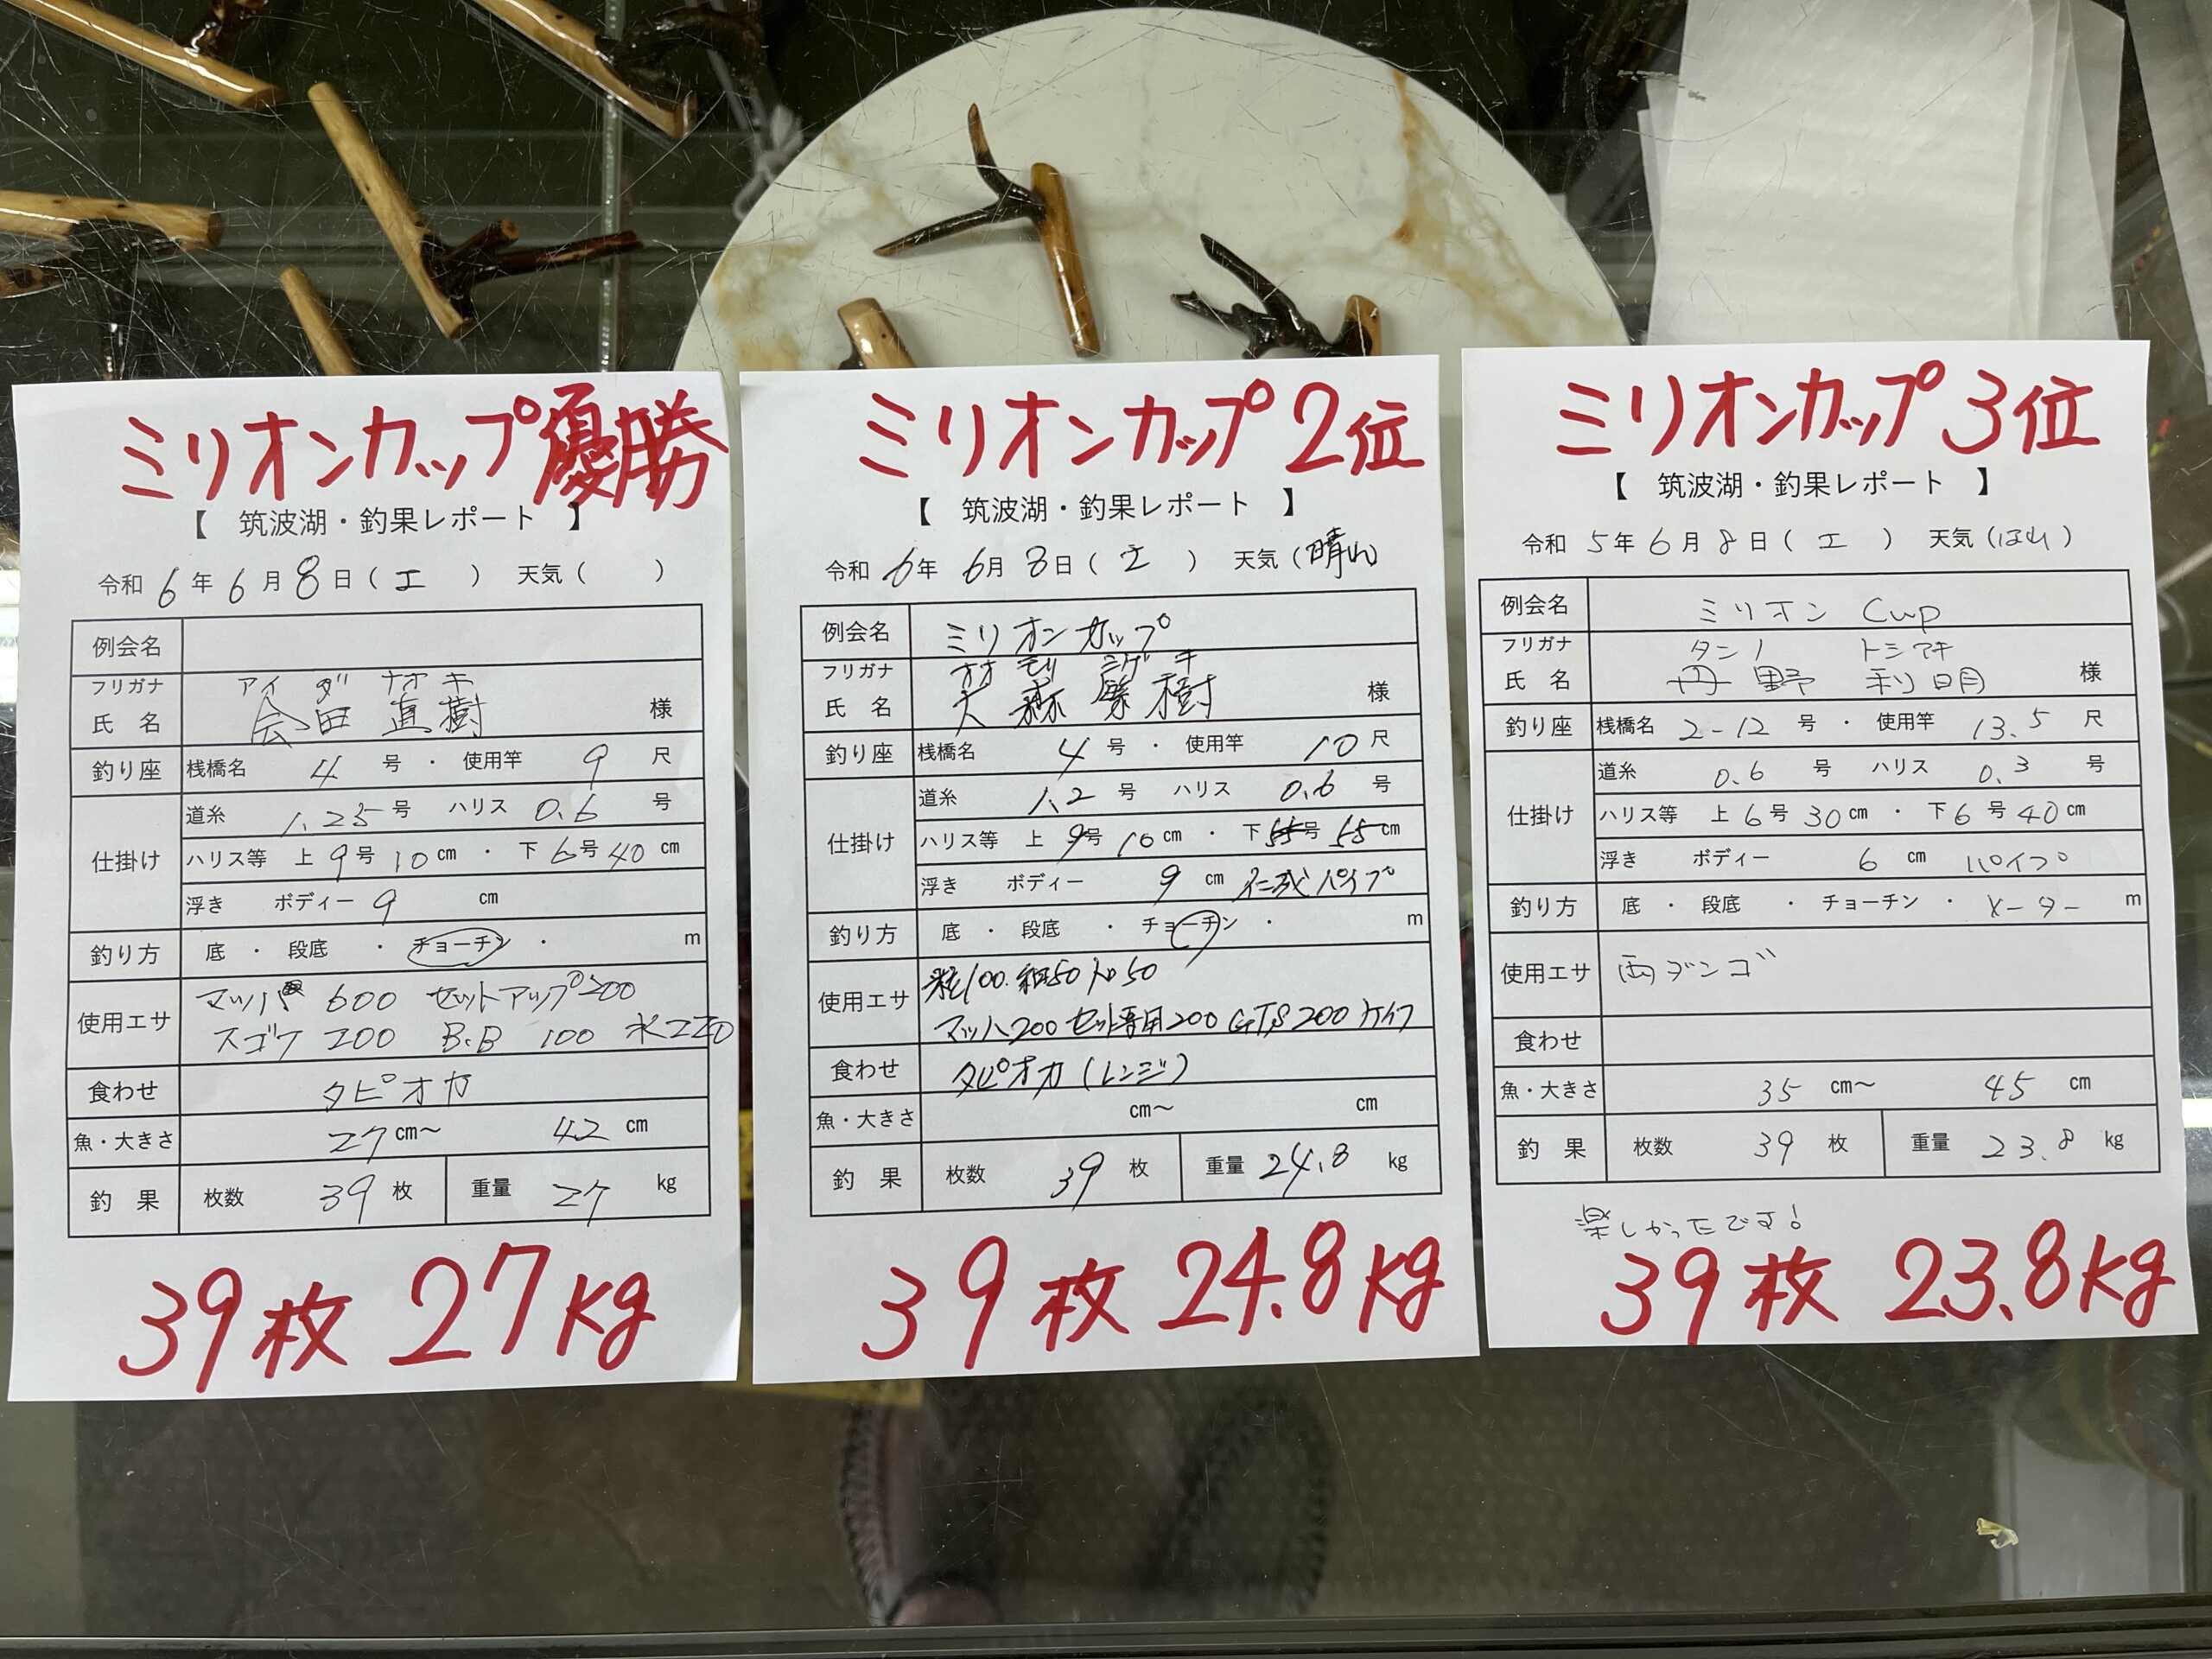 ミリオンカップ優勝
【 筑波湖・釣果レポート 】
令和 6年 6月 8日(土) 天気( )
例会名
フリガナ アイ ダ ナオ キ
氏 名 会田 直樹 様
釣り座 桟橋名 4 号 ・ 使用竿 9 尺
仕掛け 道糸 1.25 号 ハリス 0.6 号
ハリス等 上 9号 10cm ・ 下 6号 40cm
浮き ボディー 9 cm
釣り方 底 ・ 段底 ・ チョーチン ・ m
使用エサ マッハ 600 セットアップ200
スゴケ 200 B.B 100 水
食わせ タピオカ
魚・大きさ 27cm〜 42 cm
釣 果 枚数 39 枚 重量 27 kg
39枚 27kg
ミリオンカップ2位
【 筑波湖・釣果レポート 】
令和 6年 6月 8日(土) 天気(晴れ)
例会名 ミリオンカップ
フリガナ オオ モリ シゲ キ
氏 名 大森 繁樹 様
釣り座 桟橋名 4 号 ・ 使用竿 10 尺
仕掛け 道糸 1.2 号 ハリス 0.6 号
ハリス等 上 9号 10cm ・ 下 号 55cm
浮き ボディー 9 cm パイプ
釣り方 底 ・ 段底 ・ チョーチン ・ m
使用エサ 粒100. 細50 トロ50
マッハ200 セット専用200 GTS200
食わせ タピオカ(レンジ)
魚・大きさ cm〜 cm
釣 果 枚数 39 枚 重量 24.8 kg
39枚 24.8kg
ミリオンカップ3位
【 筑波湖・釣果レポート 】
令和 5年 6月 8日(土) 天気(はれ)
例会名 ミリオン Cup
フリガナ タンノ トシアキ
氏 名 丹野 利明 様
釣り座 桟橋名 2-12 号 ・ 使用竿 13.5 尺
仕掛け 道糸 0.6 号 ハリス 0.3 号
ハリス等 上 6号 30cm ・ 下 6号 40cm
浮き ボディー 6 cm パイプ
釣り方 底 ・ 段底 ・ チョーチン ・ メーター m
使用エサ 両ダンゴ
食わせ
魚・大きさ 35 cm〜 45 cm
釣 果 枚数 39 枚 重量 23.8 kg
楽しかったです!
39枚 23.8kg